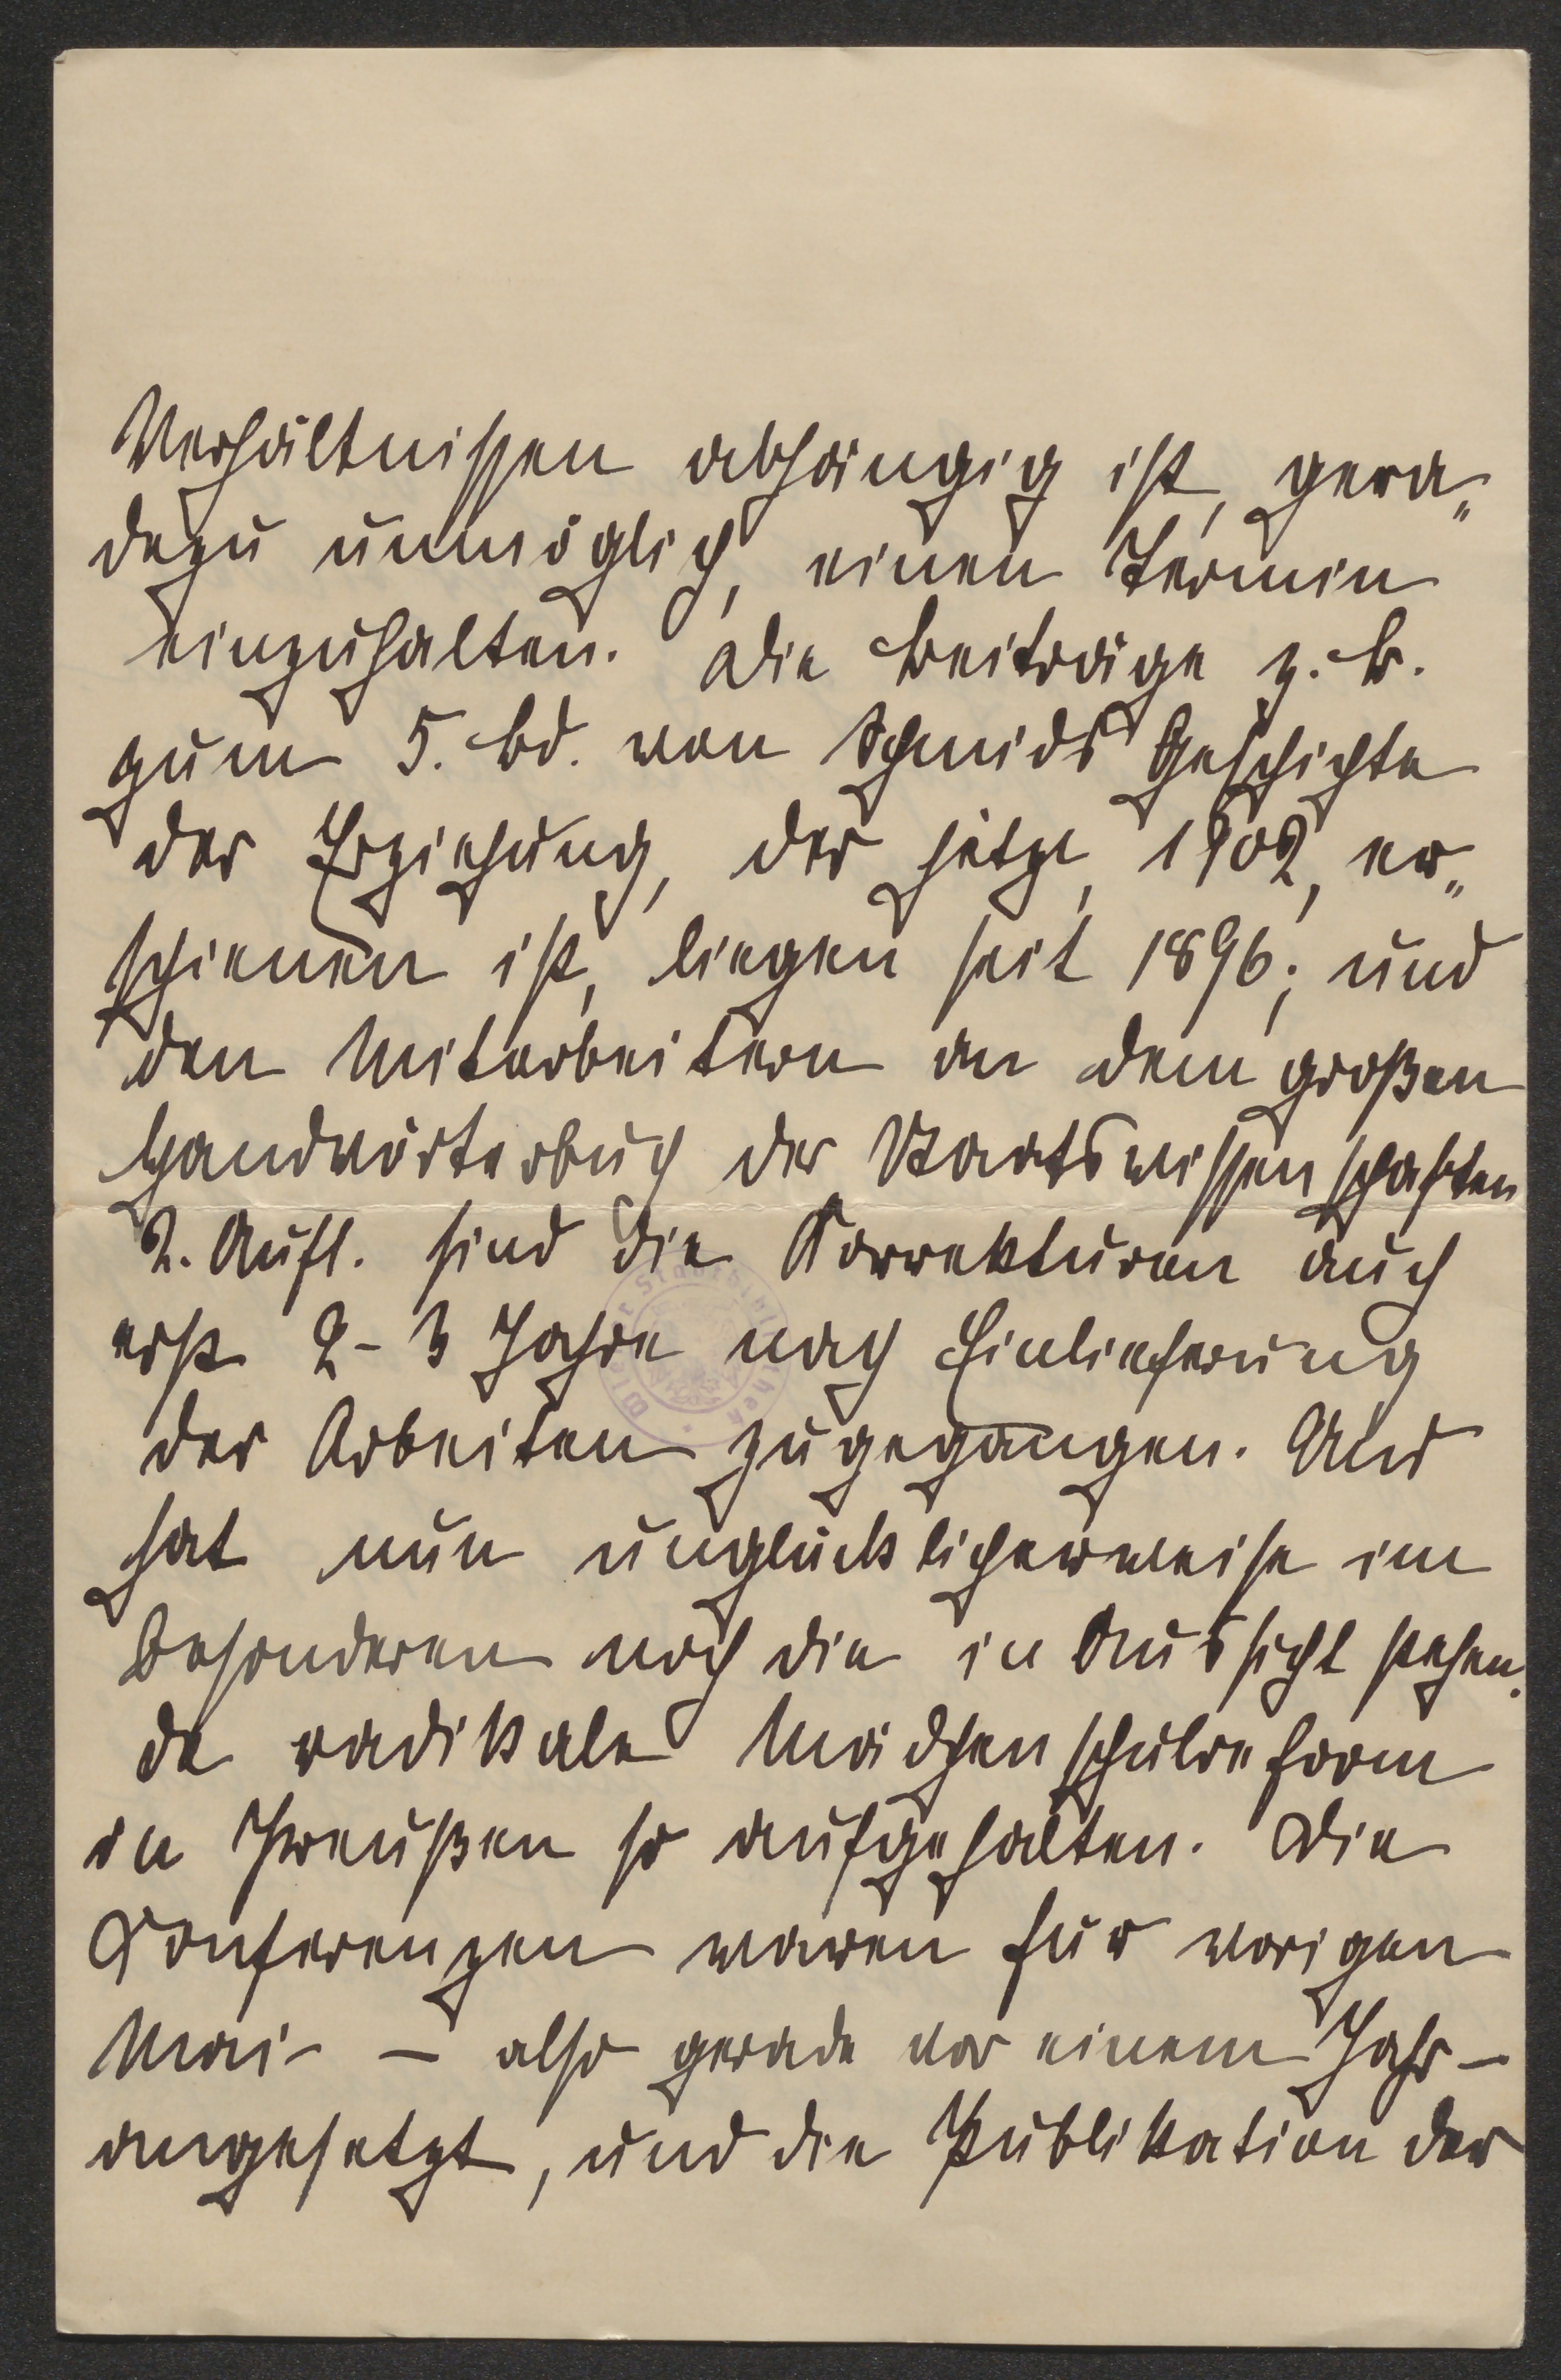 Verhältnissen abhängig ist, gera„
dezu unmöglich, einen Termin
einzuhalten. Die Beiträge z. B.
zum 5. Bd. von Schmids Geschichte
der Erziehung, der jetzt, 1902, er„
schienen ist, liegen seit 1896; und
den Mitarbeitern an dem großen
Handwörterbuch der Staatswissenschaften
2. Aufl. sind die Korrekturen auch
erst 2-3 Jahre nach Einlieferung
der Arbeiten zugegangen. Uns
hat nun unglücklicherweise im
Besonderen noch die in Aussicht stehen-
de radikale Mädchenschulreform
in Preußen so aufgehalten. Die
Conferenzen waren für vorigen
Mai - also gerade vor einem Jahr -
angesetzt, und die Publikation der